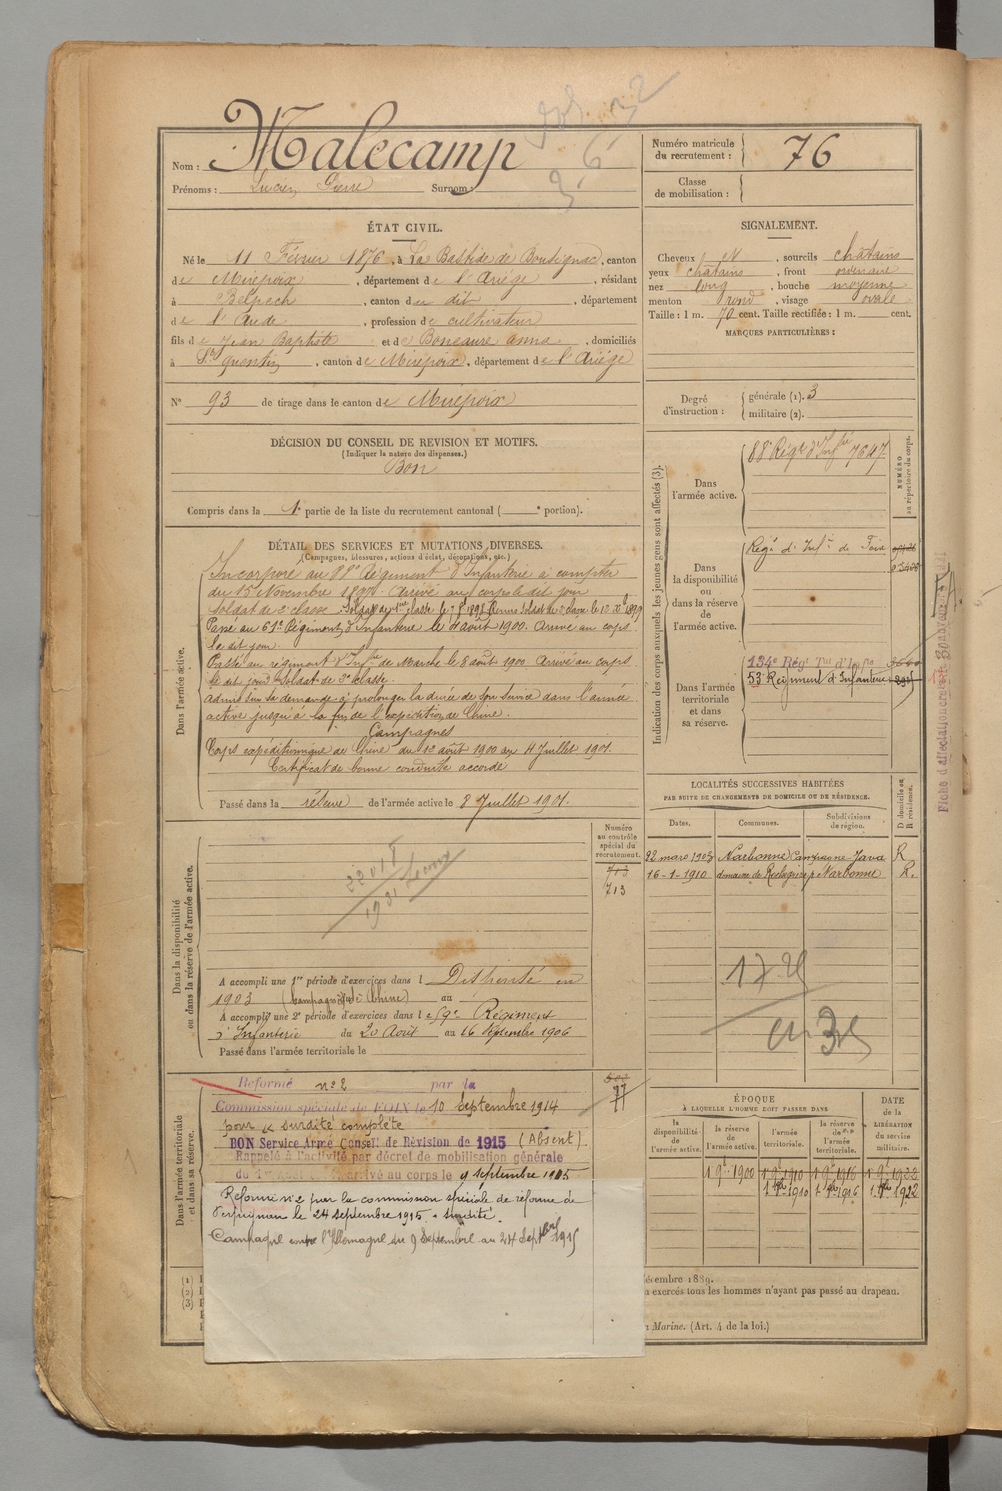 Nom : Malecamp
Prénoms : Lucien Pierre Surnom :
Numéro matricule du recrutement : 76
Classe de mobilisation :
ÉTAT CIVIL.
Né le 11 Février 1876, à La Bastide de Bousignac, canton
de Mirepoix, département de l'Ariège, résidant
à Belpech, canton du dit, département
de l'Aude, profession de cultivateur
fils de Jean Baptiste et de Boneaure Anna, domiciliés
à St Quentin, canton de Mirepoix, département de l'Ariège
N° 93 de tirage dans le canton de Mirepoix
DÉCISION DU CONSEIL DE REVISION ET MOTIFS.
(Indiquer la nature des dispenses.)
Bon
Compris dans la 1e partie de la liste du recrutement cantonal ( e portion).
SIGNALEMENT.
Cheveux N, sourcils châtains
yeux châtains, front ordinaire
nez long, bouche moyenne
menton rond, visage ovale
Taille : 1 m. 70 cent. Taille rectifiée : 1 m. cent.
MARQUES PARTICULIÈRES :
Degré d'instruction : générale (1). 3
militaire (2).
DÉTAIL DES SERVICES ET MUTATIONS DIVERSES.
(Campagnes, blessures, actions d'éclat, décorations, etc.)
Dans l'armée active.
Incorporé au 88e Régiment d'Infanterie à compter
du 15 Novembre 1897. Arrivé au corps le dit jour
Soldat de 2e classe. Soldat de 1ère classe le 7 1898 Remis soldat de 2e classe le 12 1899
Passé au 61e Régiment d'Infanterie le 4 août 1900. Arrivé au corps
le dit jour.
Passé au régiment d'Infie de Marche le 8 août 1900. Arrivé au corps
le dit jour. Soldat de 2e classe.
Admis sur sa demande à prolonger la durée de son service dans l'armée
active jusqu'à la fin de l'expédition de Chine.
Campagnes
Corps expéditionnaire de Chine du 12 août 1900 au 4 Juillet 1901.
Certificat de bonne conduite accordé
Passé dans la réserve de l'armée active le 8 Juillet 1901.
Indication des corps auxquels les jeunes gens sont affectés (3).
NUMÉRO au répertoire du corps.
Dans l'armée active.
88e Régt d'Infie 7647
Dans la disponibilité ou dans la réserve de l'armée active.
Régt d'Infie de Foix
Dans l'armée territoriale et dans sa réserve.
134e Régt Tal d'Infie
53e Régiment d'Infanterie
Fiche d'affectation
LOCALITÉS SUCCESSIVES HABITÉES
PAR SUITE DE CHANGEMENTS DE DOMICILE OU DE RÉSIDENCE.
Dates. Communes. Subdivisions de région. D domicile ou R résidence.
22 mars 1903 Narbonne Campagne Java R
16-1-1910 domaine de Narbonne R.
Dans la disponibilité ou dans la réserve de l'armée active.
Numéro au contrôle spécial du recrutement.
713
713
A accompli une 1re période d'exercices dans l Dispensé en
1903 (Campagne de Chine) au
A accompli une 2e période d'exercices dans le 59e Régiment
d'Infanterie du 20 Août au 16 Septembre 1906
Passé dans l'armée territoriale le
Dans l'armée territoriale et dans sa réserve.
77
Réformé n° 2 par la
Commission spéciale de FOIX le 10 Septembre 1914
pour « surdité complète
BON Service Armé Conseil de Révision de 1915 (Absent)
Rappelé à l'activité par décret de mobilisation générale
du 1er arrivé au corps le 9 septembre 1915
Réformé n° 2 par la commission spéciale de réforme de
Perpignan le 24 septembre 1915. « surdité.
Campagne contre l'Allemagne du 9 Septembre au 24 Septbre 1915
ÉPOQUE
À LAQUELLE L'HOMME DOIT PASSER DANS
la disponibilité de l'armée active. la réserve de l'armée active. l'armée territoriale. la réserve de l'armée territoriale.
DATE de la LIBÉRATION du service militaire.
1 9e 1900 1 9e 1910 1 9e 1916 1 9e 1922
1 1910 1 1916 1 1922
(1)
(2)
(3)
décembre 1889.
n exercés tous les hommes n'ayant pas passé au drapeau.
Marine. (Art. 4 de la loi.)